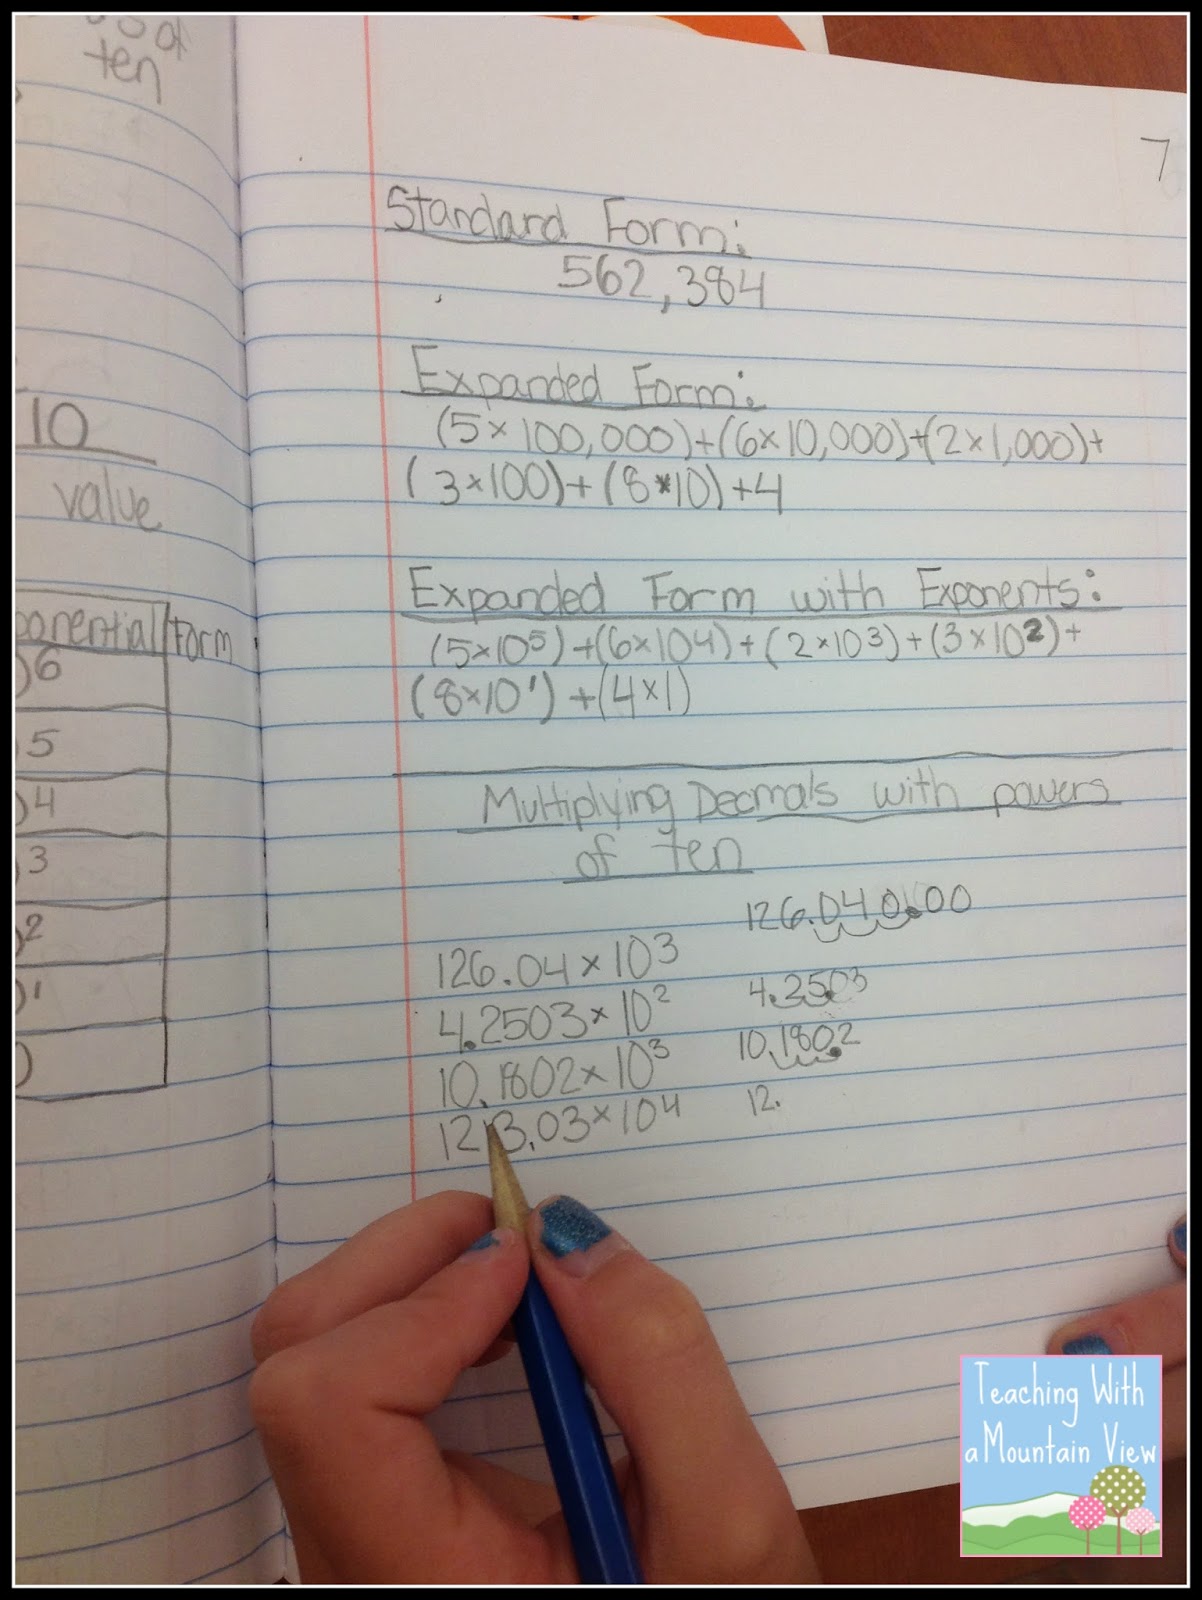 ten
10
value
ponential form
6
5
4
3
2
1
7
Standard Form:
562,384
Expanded Form:
(5×100,000)+(6×10,000)+(2×1,000)+
(3×100)+(8×10)+4
Expanded Form with Exponents:
(5×10⁵)+(6×10⁴)+(2×10³)+(3×10²)+
(8×10¹)+(4×1)
Multiplying Decmals with powers
of ten
126.04×10³ 126.040.00
4.2503×10² 4.25.03
10.1802×10³ 10.180.2
12.
Teaching With
a Mountain View